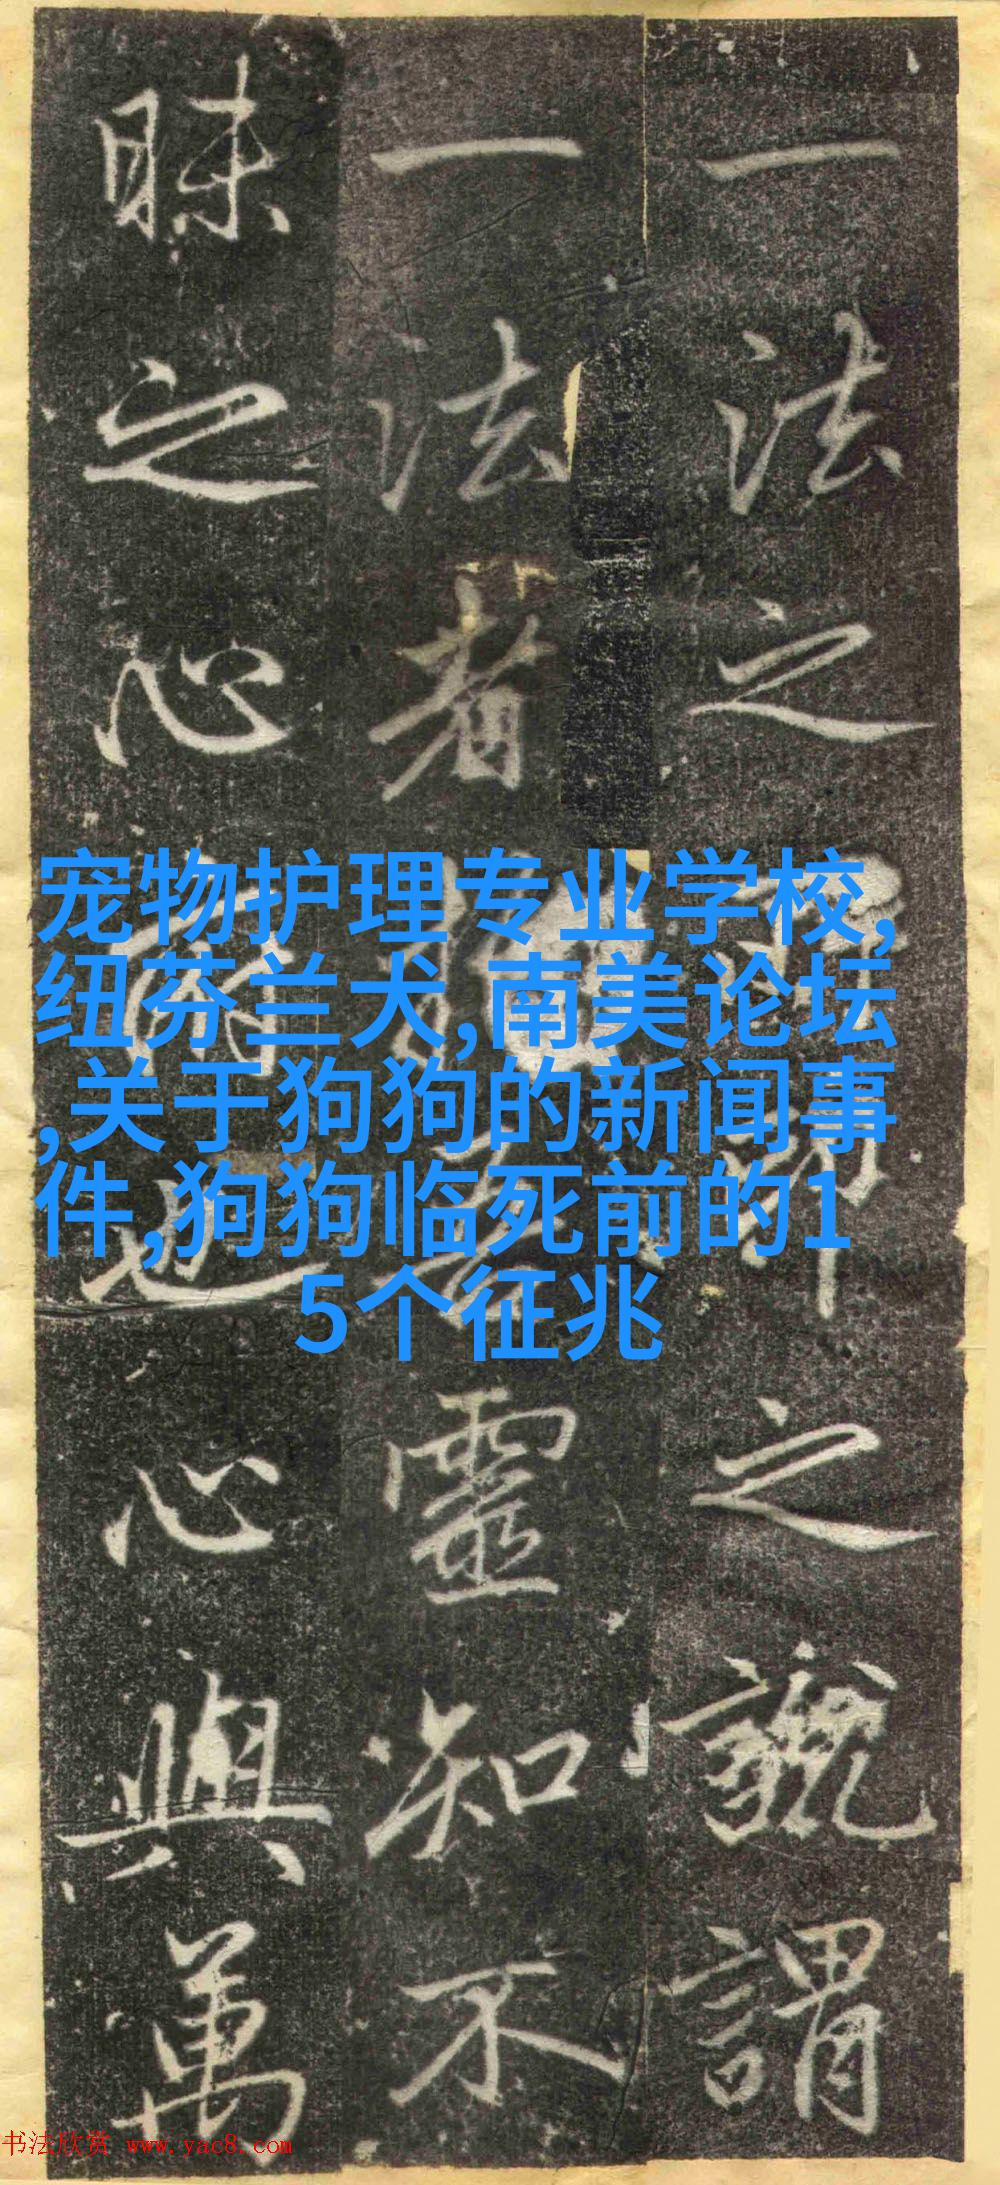 一法之之號謂
一法者靈知不
昧之心也心與萬
宠物护理专业学校,
纽芬兰犬,南美论坛
,关于狗狗的新闻事
件,狗狗临死前的1
5个征兆
书法欣赏 www.yac8.com